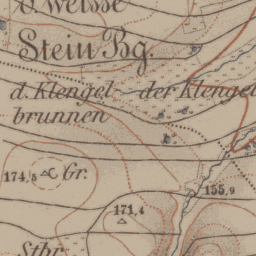 d. Weisse
Stein Bg.
d. Klengel- der Klengel
brunnen
174,5 Gr.
155,9
171,4
Stbr.